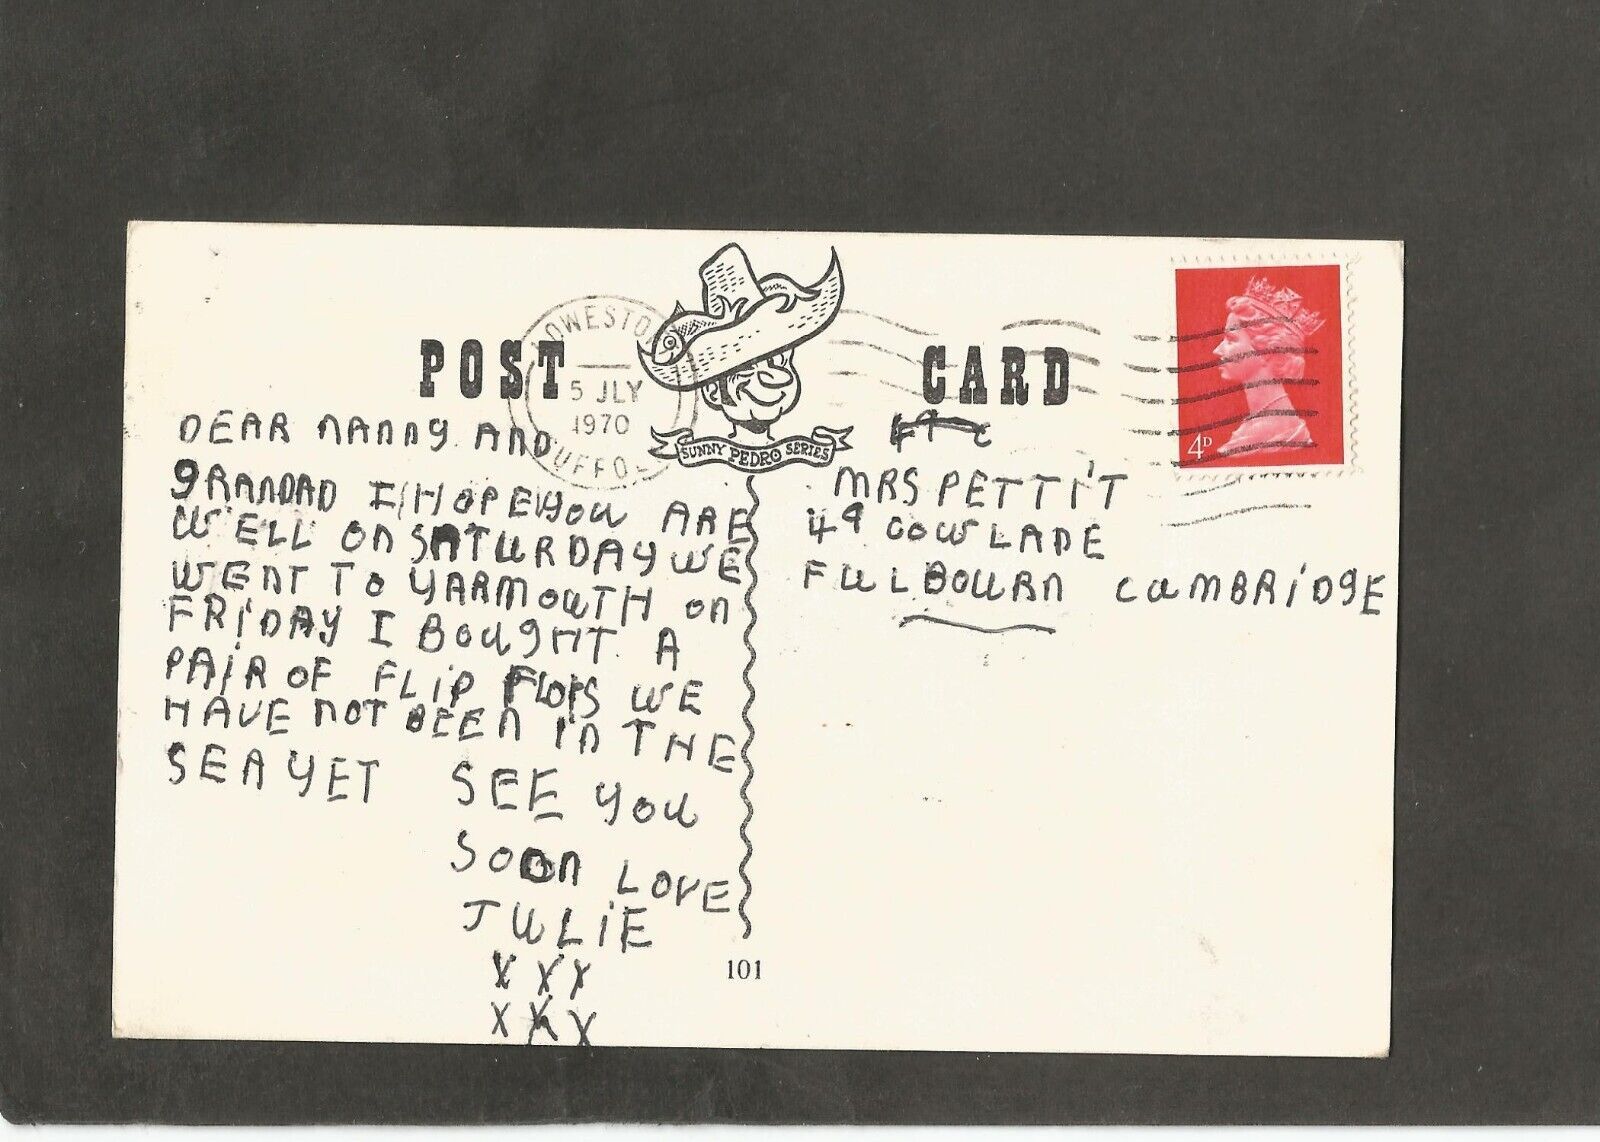 POST CARD
OWESTO
5 JLY
1970
UFFO
SUNNY PEDRO SERIES
4D
DEAR NANNY AND
GRANDAD I HOPE YOU ARE
WELL ON SATURDAY WE
WENT TO YARMOUTH ON
FRIDAY I BOUGHT A
PAIR OF FLIP FLOPS WE
HAVE NOT BEEN IN THE
SEA YET SEE YOU
SOON LOVE
JULIE
X X X
X X X
MRS PETTIT
49 COW LANE
FULBOURN CAMBRIDGE
101